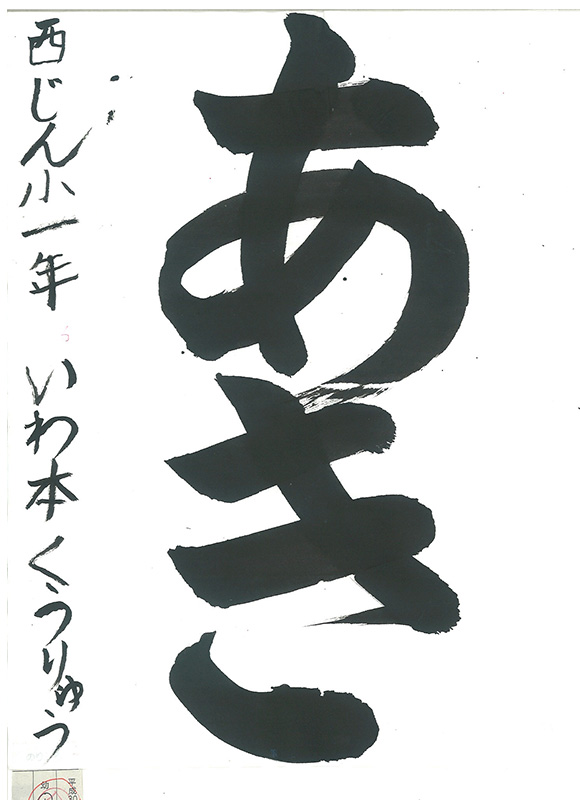 あき
西じん小一年 いわ本くうりゅう
平成
幼